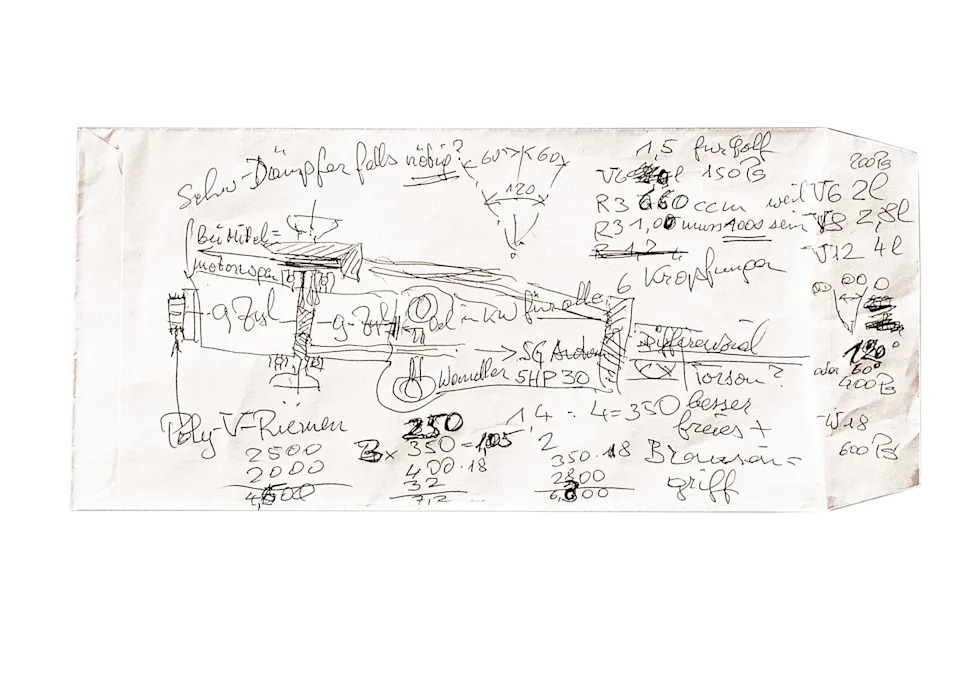 Schw-Dämpfer falls nötig?
60° 60°
120
1,5 für Golf
V6 150 PS
R3 660 ccm weil V6 2l
R3 1,00 muss 1000 sein V8 2,8l
V12 4l
200 PS
6 Kröpfungen
Bei Mittel=
motorwagen
9 Zyl 9 Zyl Öl in KW für alle
Differenzial
SG Audi
Wandler 5HP30
Torson?
besser
freies +
Browson=
griff
120°
oder 60°
400 PS
W18
600 PS
Poly-V-Riemen
2500
2000
250
350 = 105
400 · 18
32
7,2
1,4 : 4 = 350
2
350 · 18
2800